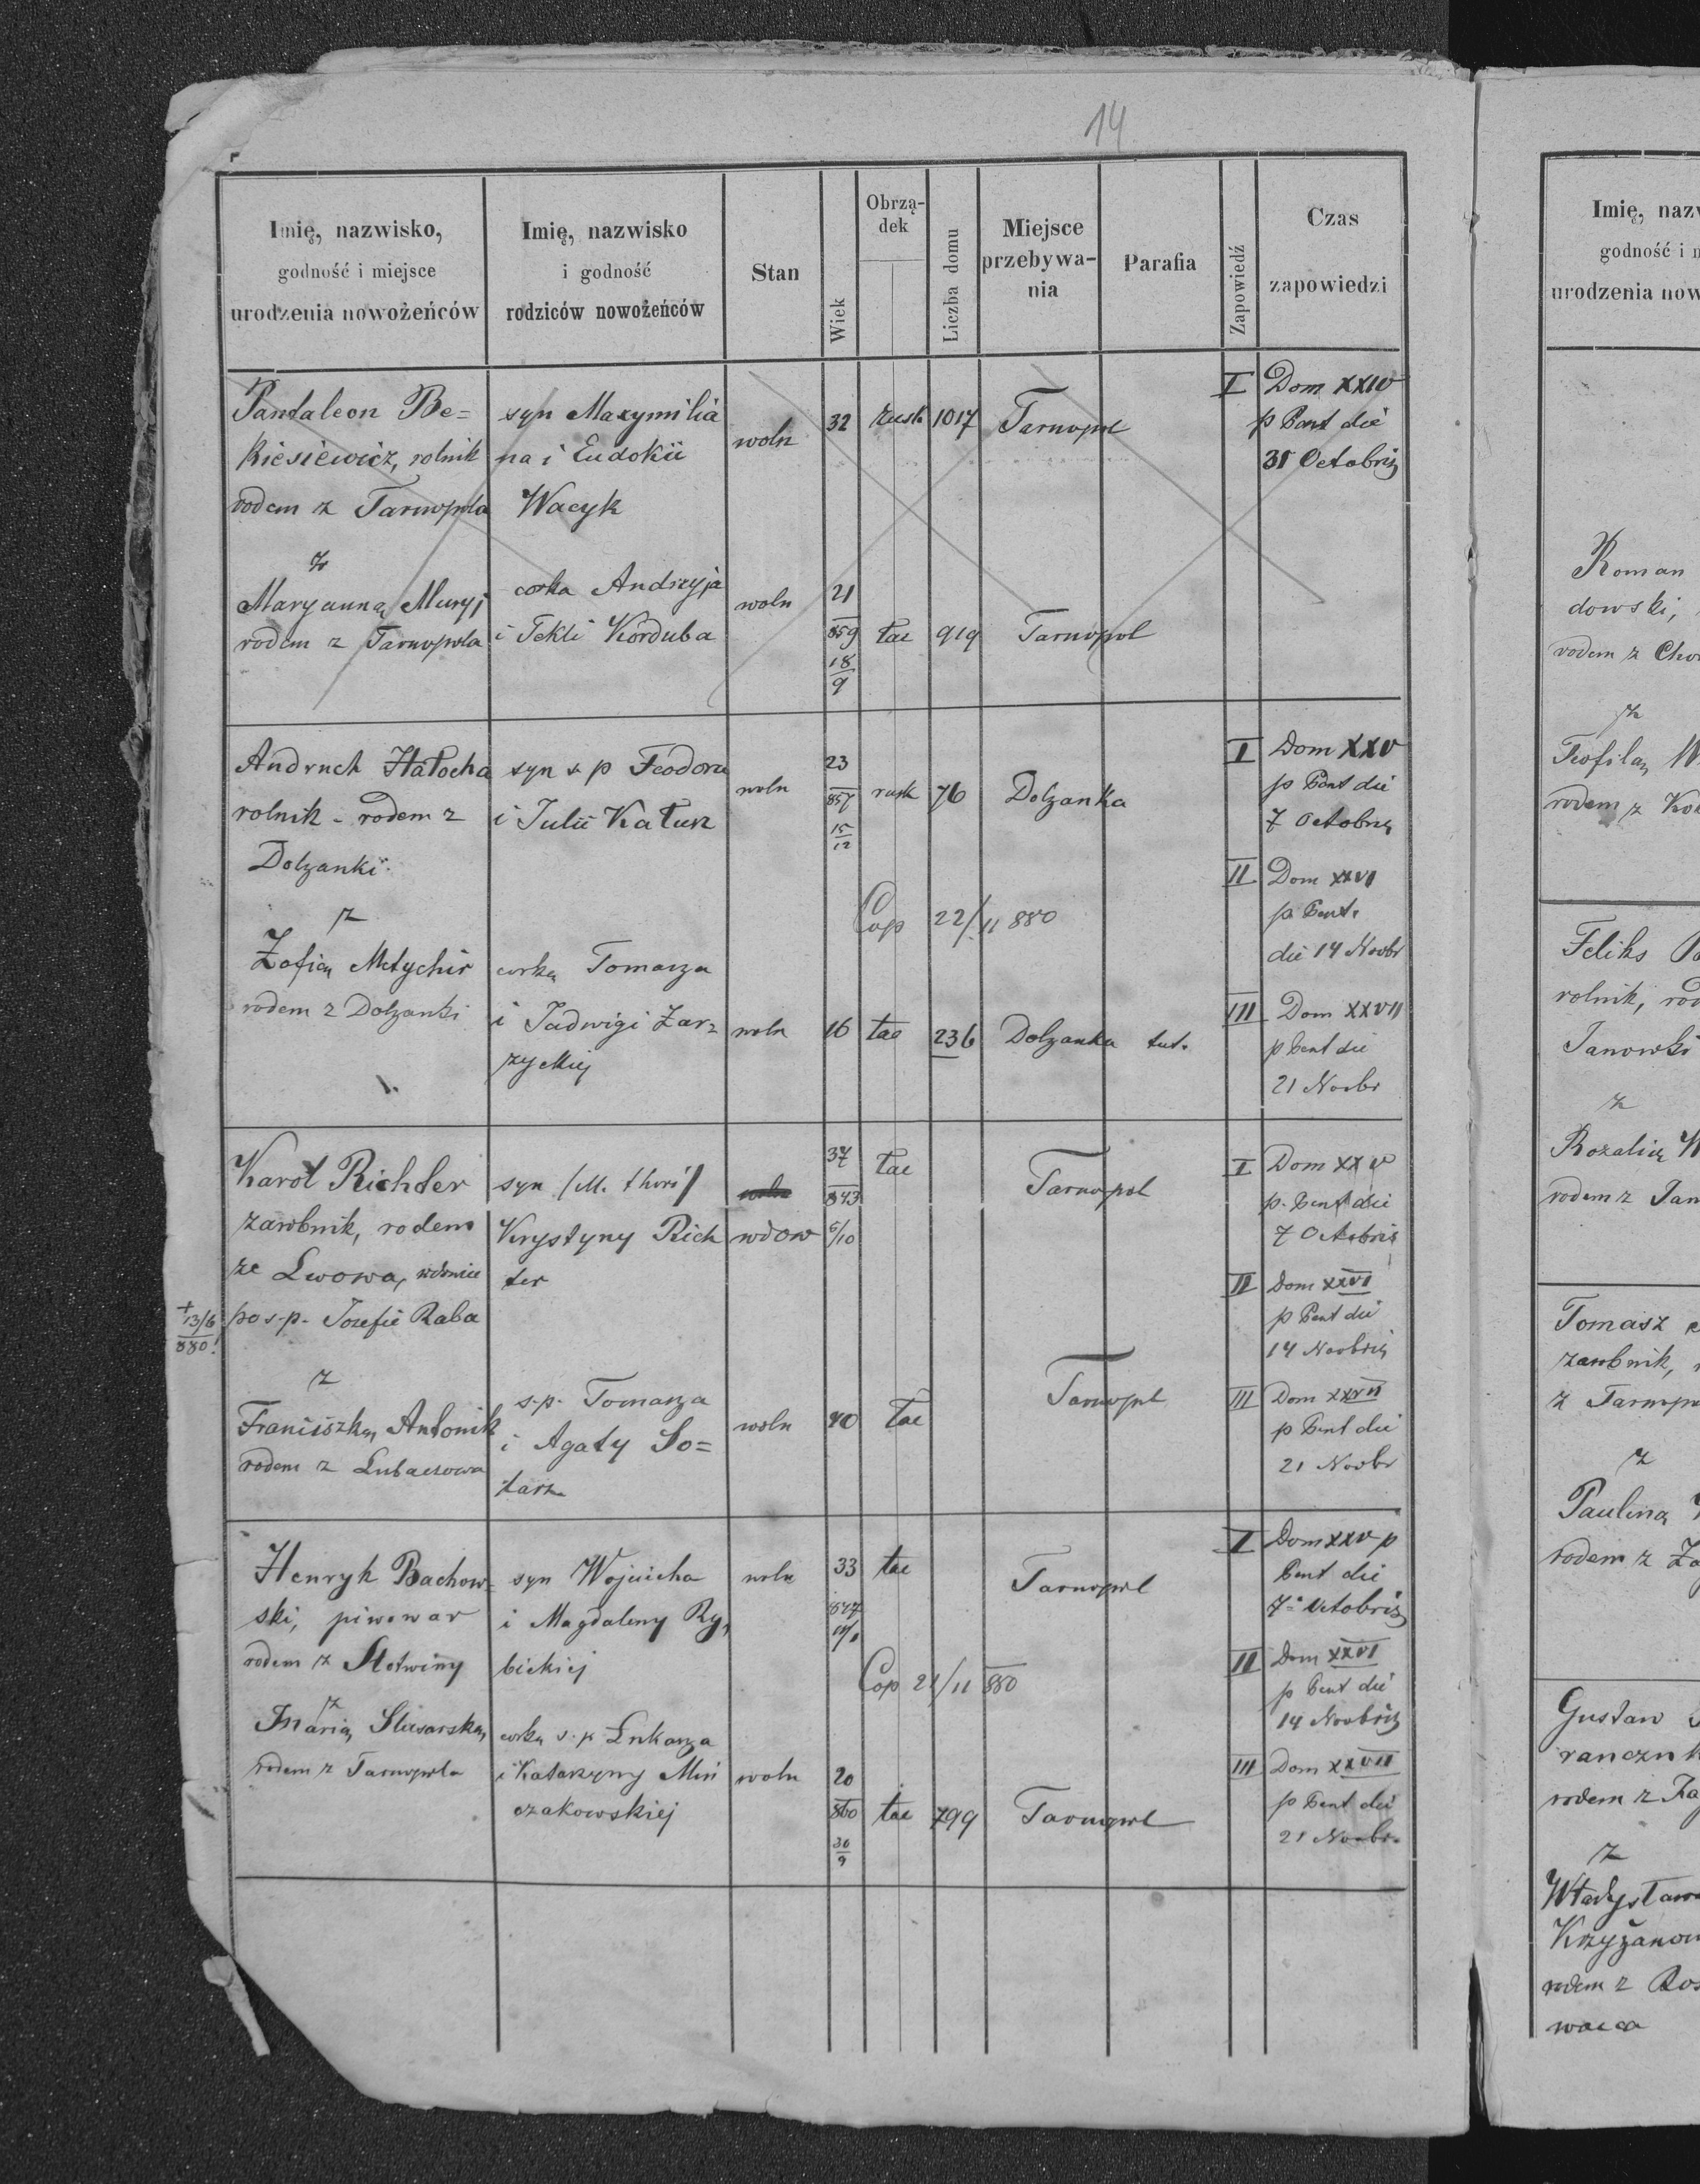 14
Imię, nazwisko,
godność i miejsce
urodzenia nowożeńców
Imię, nazwisko
i godność
rodziców nowożeńców
Stan
Wiek
Obrzą-
dek
Liczba domu
Miejsce
przebywa-
nia
Parafia
Zapowiedź
Czas
zapowiedzi
Pantaleon Be=
kiesiewicz, rolnik
rodem z Tarnopola
z
Maryanną Muryj
rodem z Tarnopola
syn Maxymilia
na i Eudokii
Wacyk
corka Andrzyja
i Tekli Korduba
woln
woln
32
21
859
18
9
rusk
łac
1017
919
Tarnopol
Tarnopol
I
Dom XXIV
p Pent die
31 Octobris
Andruch Hałocha
rolnik - rodem z
Dolżanki
z
Zofią Metychir
rodem z Dolżanki
syn s p Feodora
i Julii Katusz
corką Tomasza
i Jadwigi Zar=
zyckiej
woln
woln
23
857
15
12
16
rusk
łac
76
236
Dolżanka
Dolżanka tut.
Cop 22/11 880
I
Dom XXV
p Pent die
7 Octobris
II
Dom XXVI
p Pent.
die 14 Novbr
III
Dom XXVII
p Pent die
21 Novbr
Karol Richter
zarobnik, rodem
ze Lwowa, wdowiec
po s.p. Jozefie Raba
+13/6
880!
z
Franciszką Antonik
rodem z Lubaczowa
syn (M. thori)
Krystyny Rich
ter
s.p. Tomasza
i Agaty So=
tarz
woln
wdow
woln
37
843
5/10
40
łac
łac
Tarnopol
Tarnopol
I
Dom XXV
p. Pent die
7 Octobris
II
Dom XXVI
p Pent die
14 Novbris
III
Dom XXVII
p Pent die
21 Novbr
Henryk Bachow=
ski, piwowar
rodem z Słotwiny
z
Marią Slusarską,
rodem z Tarnopola
syn Wojciecha
i Magdaleny Ry,
bickiej
corką s.p Łukasza
i Katarzyny Min
czakowskiej
woln
woln
33
847
20
860
30
9
łac
łac
799
Tarnopol
Tarnopol
Cop 21/11 880
I
Dom XXV p
Pent die
7 Octobris
II
Dom XXVI
p Pent die
14 Novbris
III
Dom XXVII
p Pent die
21 Novbr.
Imię, naz
godność i
urodzenia now
Roman
dowski,
rodem z
z
Teofilą
rodem z
Feliks
rolnik,
Janowki
z
Rozalią
rodem z Jan
Tomasz
zarobnik,
z Tarnop
z
Pauliną
rodem z
Gustaw
ranczuk
rodem z
z
Władysławą
Krzyżanow
rodem z